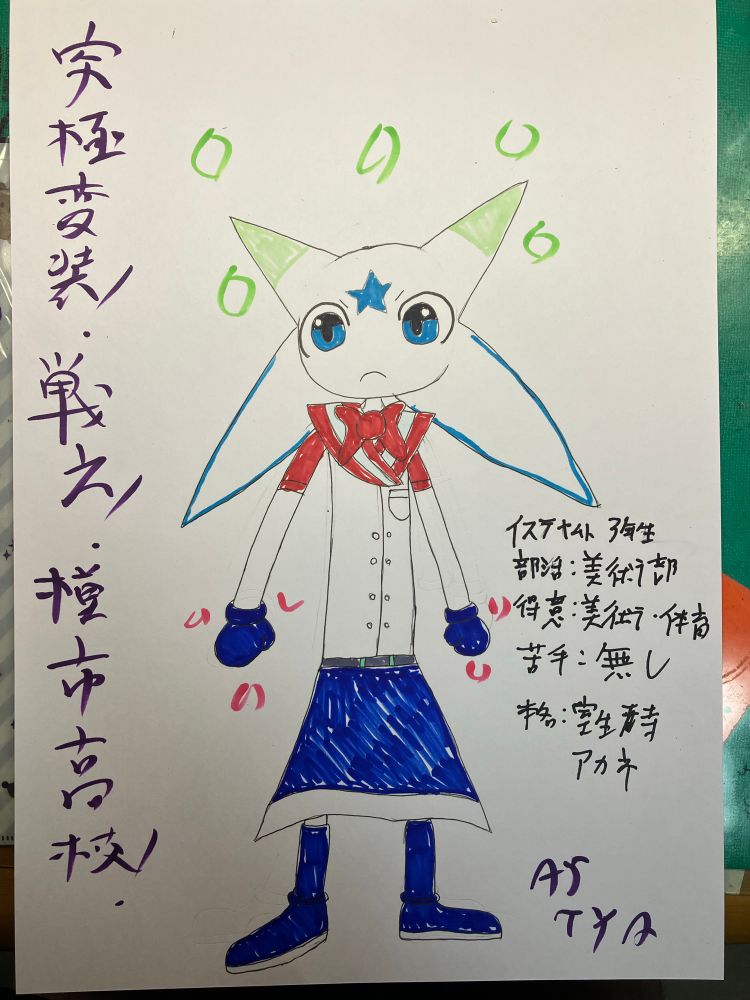 究極変装!.戦士!.橦市高校!.
イステナイト 3年生
部活:美術部
得意:美術・体育
苦手:無し
アカネ
AY
TYA